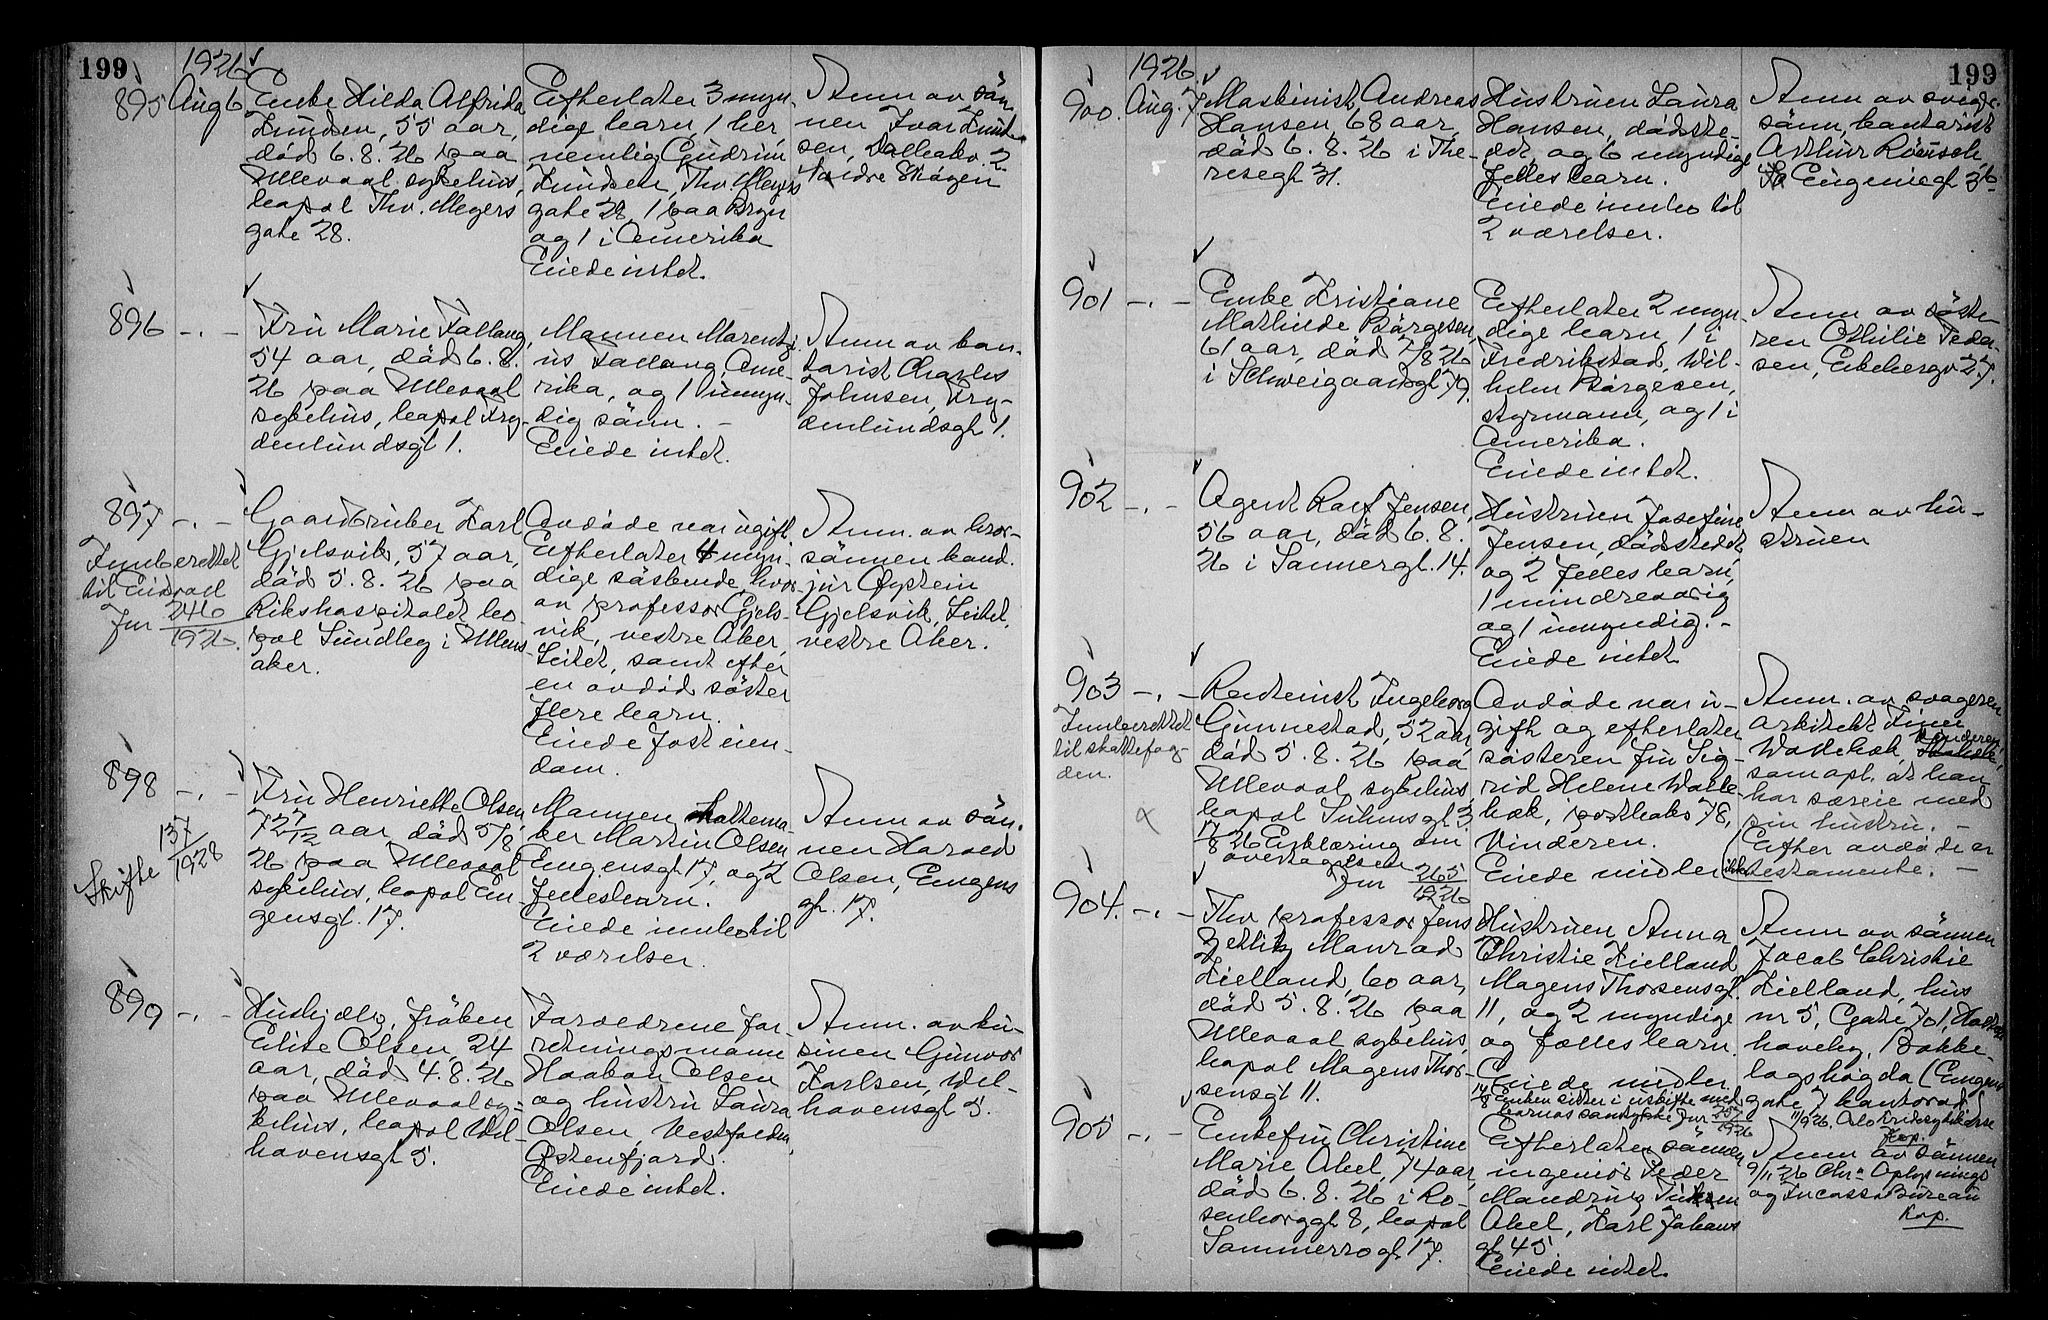 199
1926
895 Aug 6
Enke Hilda Alfrida
Knudsen, 55 aar,
död 6.8.26 paa
Ullevaal sykehus,
bopæl Thv. Meyers
gate 28.
Efterlater 3 myn-
dige barn, 1 her
nemlig Gudrun
Knudsen, Thv. Meyers
gate 28, 1 paa Bryn
og 1 i Amerika
Eiede intet.
Anm. av sön-
nen Ivar Knud-
sen,
Nordre Skøyen
896 -.-
Fru Marie Falang,
54 aar, död 6.8.
26 paa Ullevaal
sykehus, bopæl Fry-
denlundsgt 1.
Mannen Marenti-
us Falang, Ame-
rika, og 1 umyn-
dig sönn. -
Eiede intet.
Anm. av kon-
torist Charles
Johnsen, Fry-
denlundsgt 1.
897 -.-
Innberettet
til Eidsvoll
Jnr 246/1926.
Gaardbruker Karl
Gjelsvik, 57 aar,
död 5.8.26 paa
Rikshospitalet bo-
pæl Sundby i Ullens-
aker.
Avdöde var ugift
Efterlater 4 myn-
dige söskende, hvor
av professor Gjels-
vik, vestre Aker,
Leitet, samt efter
en avdöd söster
flere barn.
Eiede fast eien-
dom.
Anm. av bror-
sönnen kand.
jur Øystein
Gjelsvik, Leitet,
vestre Aker.
898 -.-
Skifte 137/1928
Fru Henriette Olsen
72 7/12 aar, död 5/8
26 paa Ullevaal
sykehus, bopæl Eu-
gensgt. 17.
Mannen skattema-
ker Martin Olsen
Eugensgt 17, og 2
fellesbarn.
Eiede innbo til
2 værelser.
Anm av sön-
nen Harald
Olsen, Eugens
gt. 17.
899 -.-
Hushjælp, fröken
Elise Olsen, 24
aar, död 4.8.26
paa Ullevaal sy-
kehus, bopæl Wil-
havensgt 5.
Forældrene for-
retningsmann
Haakon Olsen
og hustru Laura
Olsen, Vestfolden,
Østenfjord.
Eiede intet.
Anm. av ku-
sinen Gunvor
Karlsen, Wel-
havensgt 5.
199
1926.
900. Aug. 7
Maskinist Andreas
Hansen, 68 aar,
död 6.8.26 i The-
resegt 31.
Hustruen Laura
Hansen, dödste-
det, og 6 myndige
felles barn.
Eiede innbo til
2 værelser.
Anm av sviger-
sönn, kontorist
Arthur Rönsch,
Eugeniegt 36
901 -.-
Enke Kristiane
Mathilde Børgesen,
61 aar, död 7/8 26
i Schweigaardsgt 79.
Efterlater 2 myn-
dige barn, 1 i
Fredrikstad, Wil-
helm Børgesen,
styrmann, og 1 i
Amerika.
Eiede intet.
Anm av söste
ren Othilie Peder-
sen, Ekebergv 27.
902 -.-
Agent Ralf Jensen,
56 aar, död 6.8.
26 i Sannergt. 14.
Hustruen Josefine
Jensen, dödstedet,
og 2 felles barn,
1 mindreaarig
og 1 umyndig. -
Eiede intet
Anm av hu-
struen
903 -.-
Innberettet
til skattefog-
den.
Kontorist Ingeborg
Gunnestad, 52 aar,
död 5.8.26 paa
Ullevaal sykehus
bopæl Suhmsgt 3.
17/8 26 Erklæring om
overtagelsen
Jnr 265/1926
Avdöde var u-
gift og efterlater
sösteren fru Sig-
rid Helene Walle-
bæk, postboks 78,
Vinderen.
Eiede midler
Anm. av svogeren
arkitekt Finn
Wallebæk, Vinderen,
som opl. at han
har særeie med
sin hustru. -
(Efter avdöde er
ikke testamente. -
904. -.-
Fhv professor Jens
Zetlitz Monrad
Kielland, 60 aar,
död 5.8.26 paa
Ullevaal sykehus,
bopæl Magens Thor-
sensgt 11.
Hustruen Anna
Christie Kielland,
Magens Thorsensgt.
11, og 2 myndige
og fælles barn.
Eiede midler
14/8 Enken sitter i uskifte med
barnas samtykke Jnr 257/1926
Anm av sönnen
Jacob Christie
Kielland, hus
nr 5, Cgate 701,
haveby, Bække-
lagshögda (Eugens
gate 7 kontorad.)
11/9 26. Oslo Kridsygekasse
Kop.
905 -.-
Enkefru Christine
Marie Abel, 74 aar,
död 6.8.26 i Ro-
senborggt 8, bopæl
Sommerrogt 17.
Efterlater sönnen
ingeniör Peder
Mandrup Tuxen
Abel, Karl Johans
gt 45
Eiede intet.
Anm av sönnen
9/11 26 Chr.a Oplysnings
og Incasso Bureau
Kop.